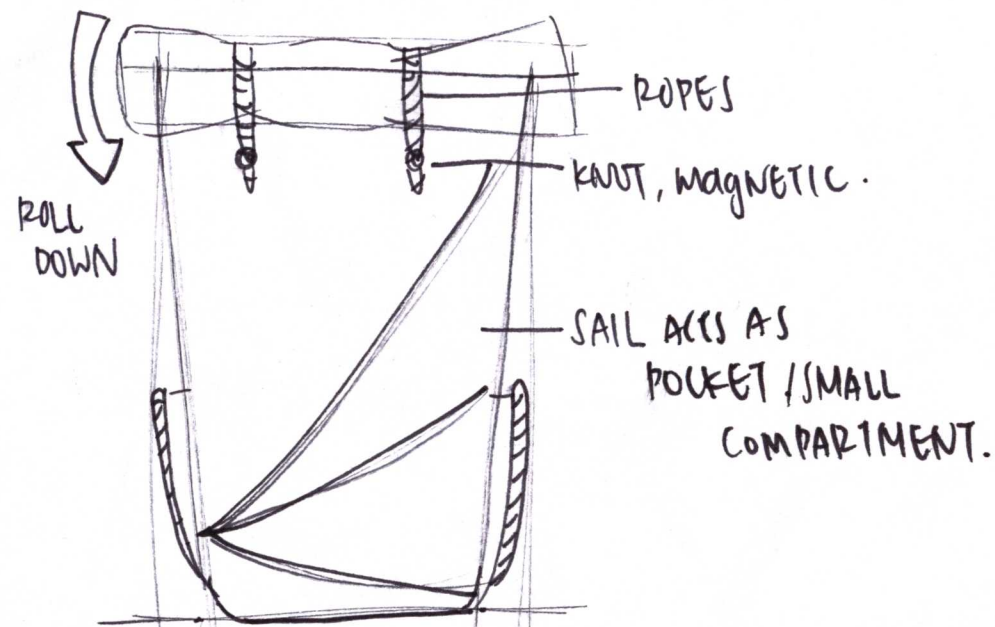 ROPES
KNOT, MAGNETIC.
ROLL
DOWN
SAIL ACTS AS
POCKET / SMALL
COMPARTMENT.